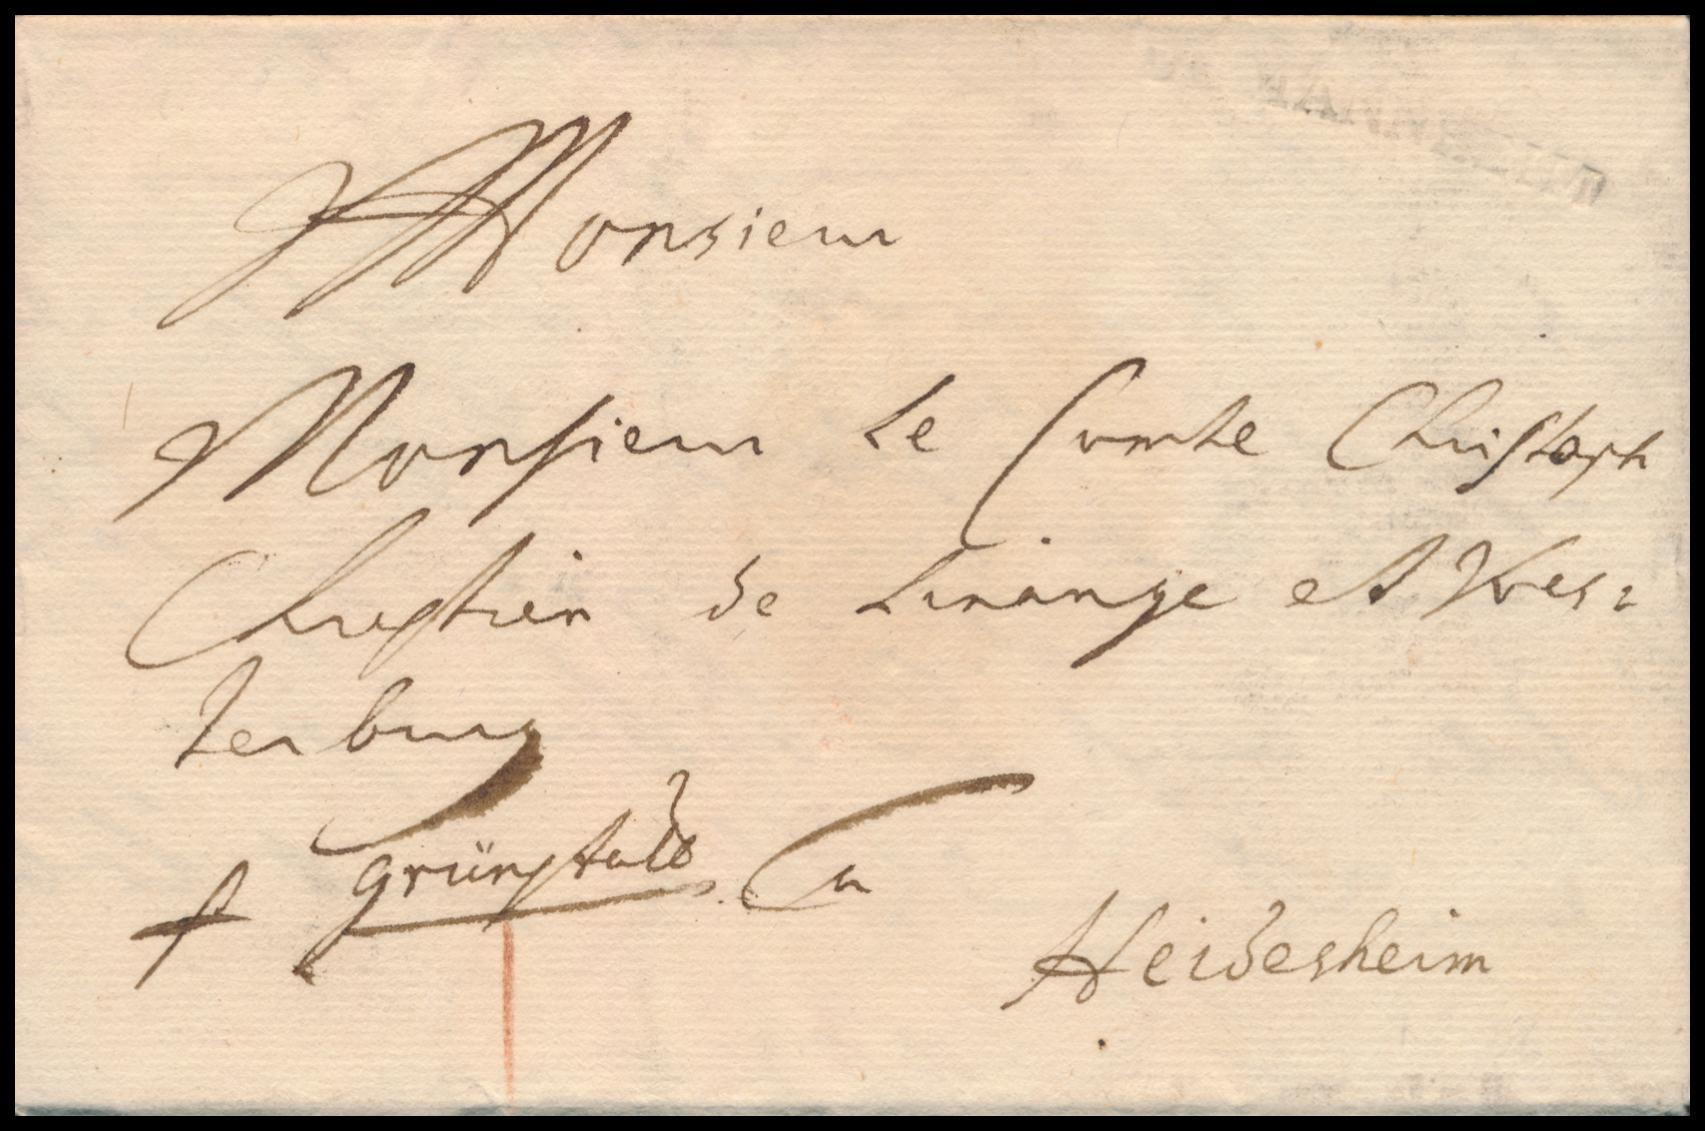 Monsieur
Monsieur le Comte Christoph
Christien de Linange et Wes=
terburg
Grünstadt
a
Heidesheim